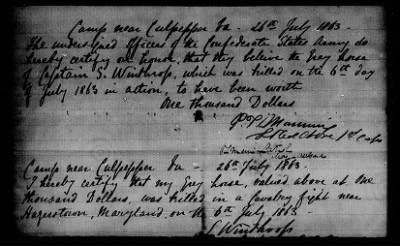 Camp near Culpepper Va - 26th July 1863.
The undersigned Officers of the Confederate States Army do
hereby certify on honor, that they believe the Grey horse
of Captain S. Winthrop, which was killed on the 6th day
of July 1863 in action, to have been worth
One thousand Dollars
Manning
1st Corps
Camp near Culpepper Va - 26th July 1863 -
I hereby certify that my Grey horse, valued above at One
thousand Dollars, was killed in a Cavalry fight near
Hagerstown, Maryland, on the 6th July 1863 -
S. Winthrop